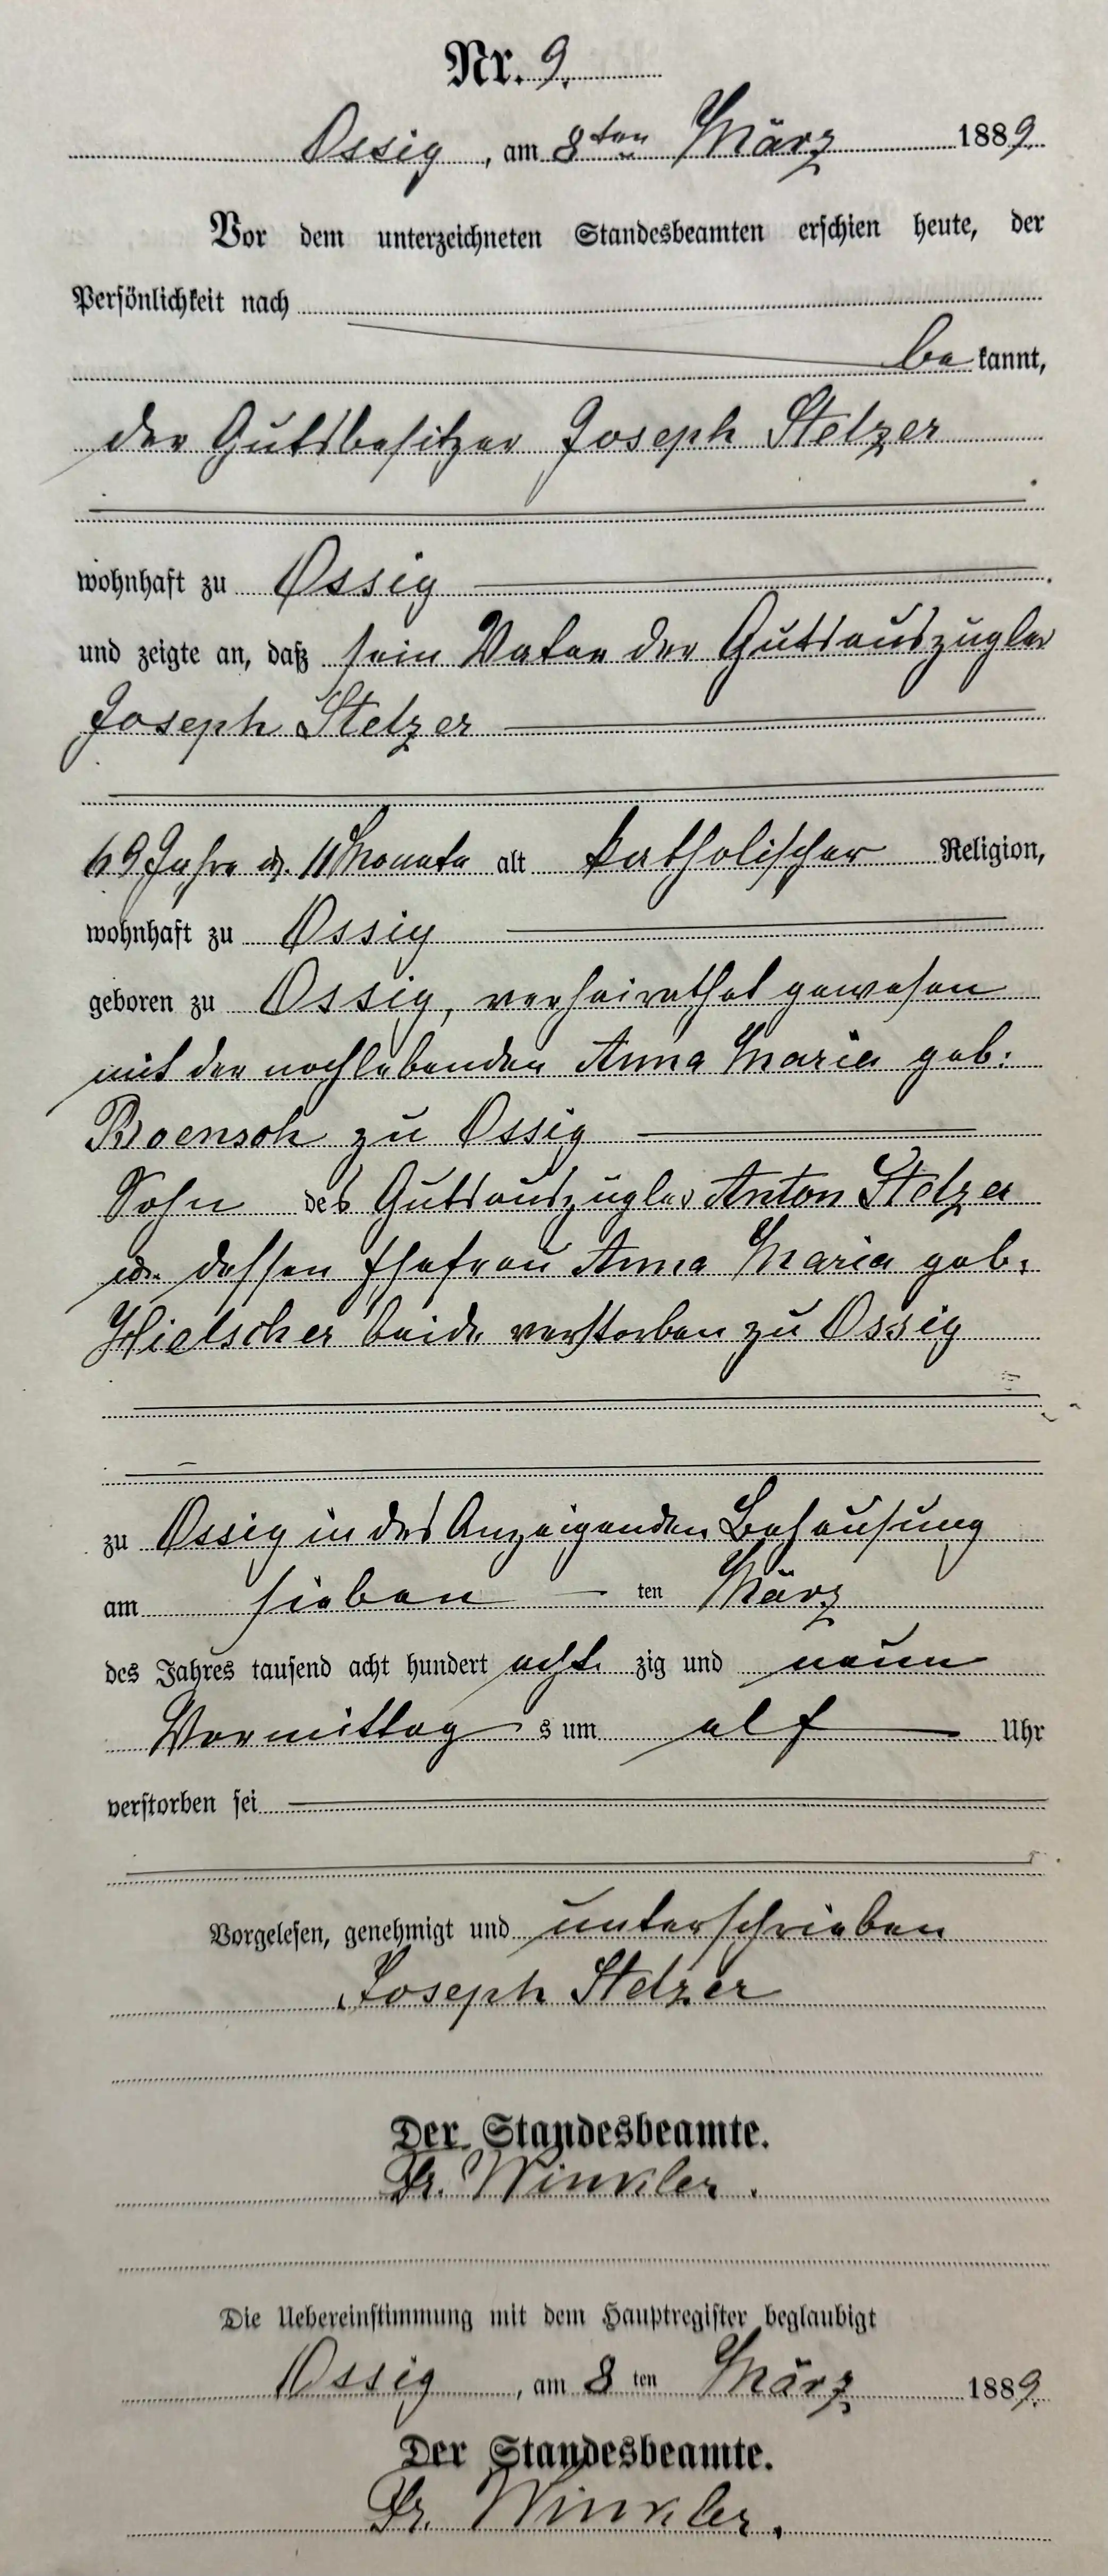 Nr. 9.
Ossig, am 8ten März 1889.
Vor dem unterzeichneten Standesbeamten erschien heute, der
Persönlichkeit nach
be kannt,
der Gutsbesitzer Joseph Stelzer
wohnhaft zu Ossig
und zeigte an, daß sein Vater der Gutsauszügler
Joseph Stelzer
69 Jahre u. 11 Monate alt katholischer Religion,
wohnhaft zu Ossig
geboren zu Ossig, verheirathet gewesen
mit der nochlebenden Anna Maria geb:
zu Ossig
Sohn des Gutsauszügler Anton Stelzer
u. dessen Ehefrau Anna Maria geb.
Hielscher beide verstorben zu Ossig
zu Ossig in des Anzeigenden Behausung
am sieben ten März
des Jahres tausend acht hundert acht zig und neun
Vormittag s um elf Uhr
verstorben sei
Vorgelesen, genehmigt und unterschrieben
Joseph Stelzer
Der Standesbeamte.
Fr. Winkler.
Die Uebereinstimmung mit dem Hauptregister beglaubigt
Ossig, am 8 ten März 1889.
Der Standesbeamte.
Fr. Winkler.